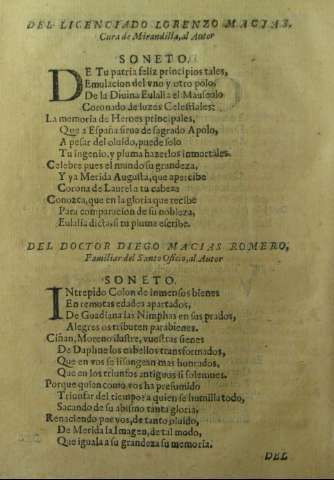 DEL LICENCIADO LORENZO MACIAS,
Cura de Mirandilla, al Autor
SONETO.
DE Tu patria feliz principios tales,
Emulacion del vno y otro polo,
De la Diuina Eulalia el Mauseolo
Coronado de luzes Celestiales:
La memoria de Heroes principales,
Que a España sirua de sagrado Apolo,
A pesar del oluido, puede solo
Tu ingenio, y pluma hazerlos inmortales.
Celebre pues el mundo su grandeza,
Y ya Merida Augusta, que apercibe
Corona de Laurel a tu cabeza
Conozca, que en la gloria que recibe
Para comparacion de su nobleza,
Eulalia dicta si tu pluma escribe.
DEL DOCTOR DIEGO MACIAS ROMERO,
Familiar del Santo Oficio, al Autor
SONETO.
INtrepido Colon de inmensos bienes
En remotas edades apartados,
De Guadiana las Nimphas en sus prados,
Alegres os tributen parabienes.
Ciñan, Moreno ilustre, vuestras sienes
De Daphne los cabellos transformados,
Que en vos se lisongean mas honrados,
Que en los triunfos antiguos si solemnes.
Porque quien como vos ha presumido
Triunfar del tiempo a quien se humilla todo,
Sacando de su abismo tanta gloria,
Renaciendo por vos, de tanto
De Merida la Imagen, de tal modo,
Que iguala a su grandeza su memoria.
DEL